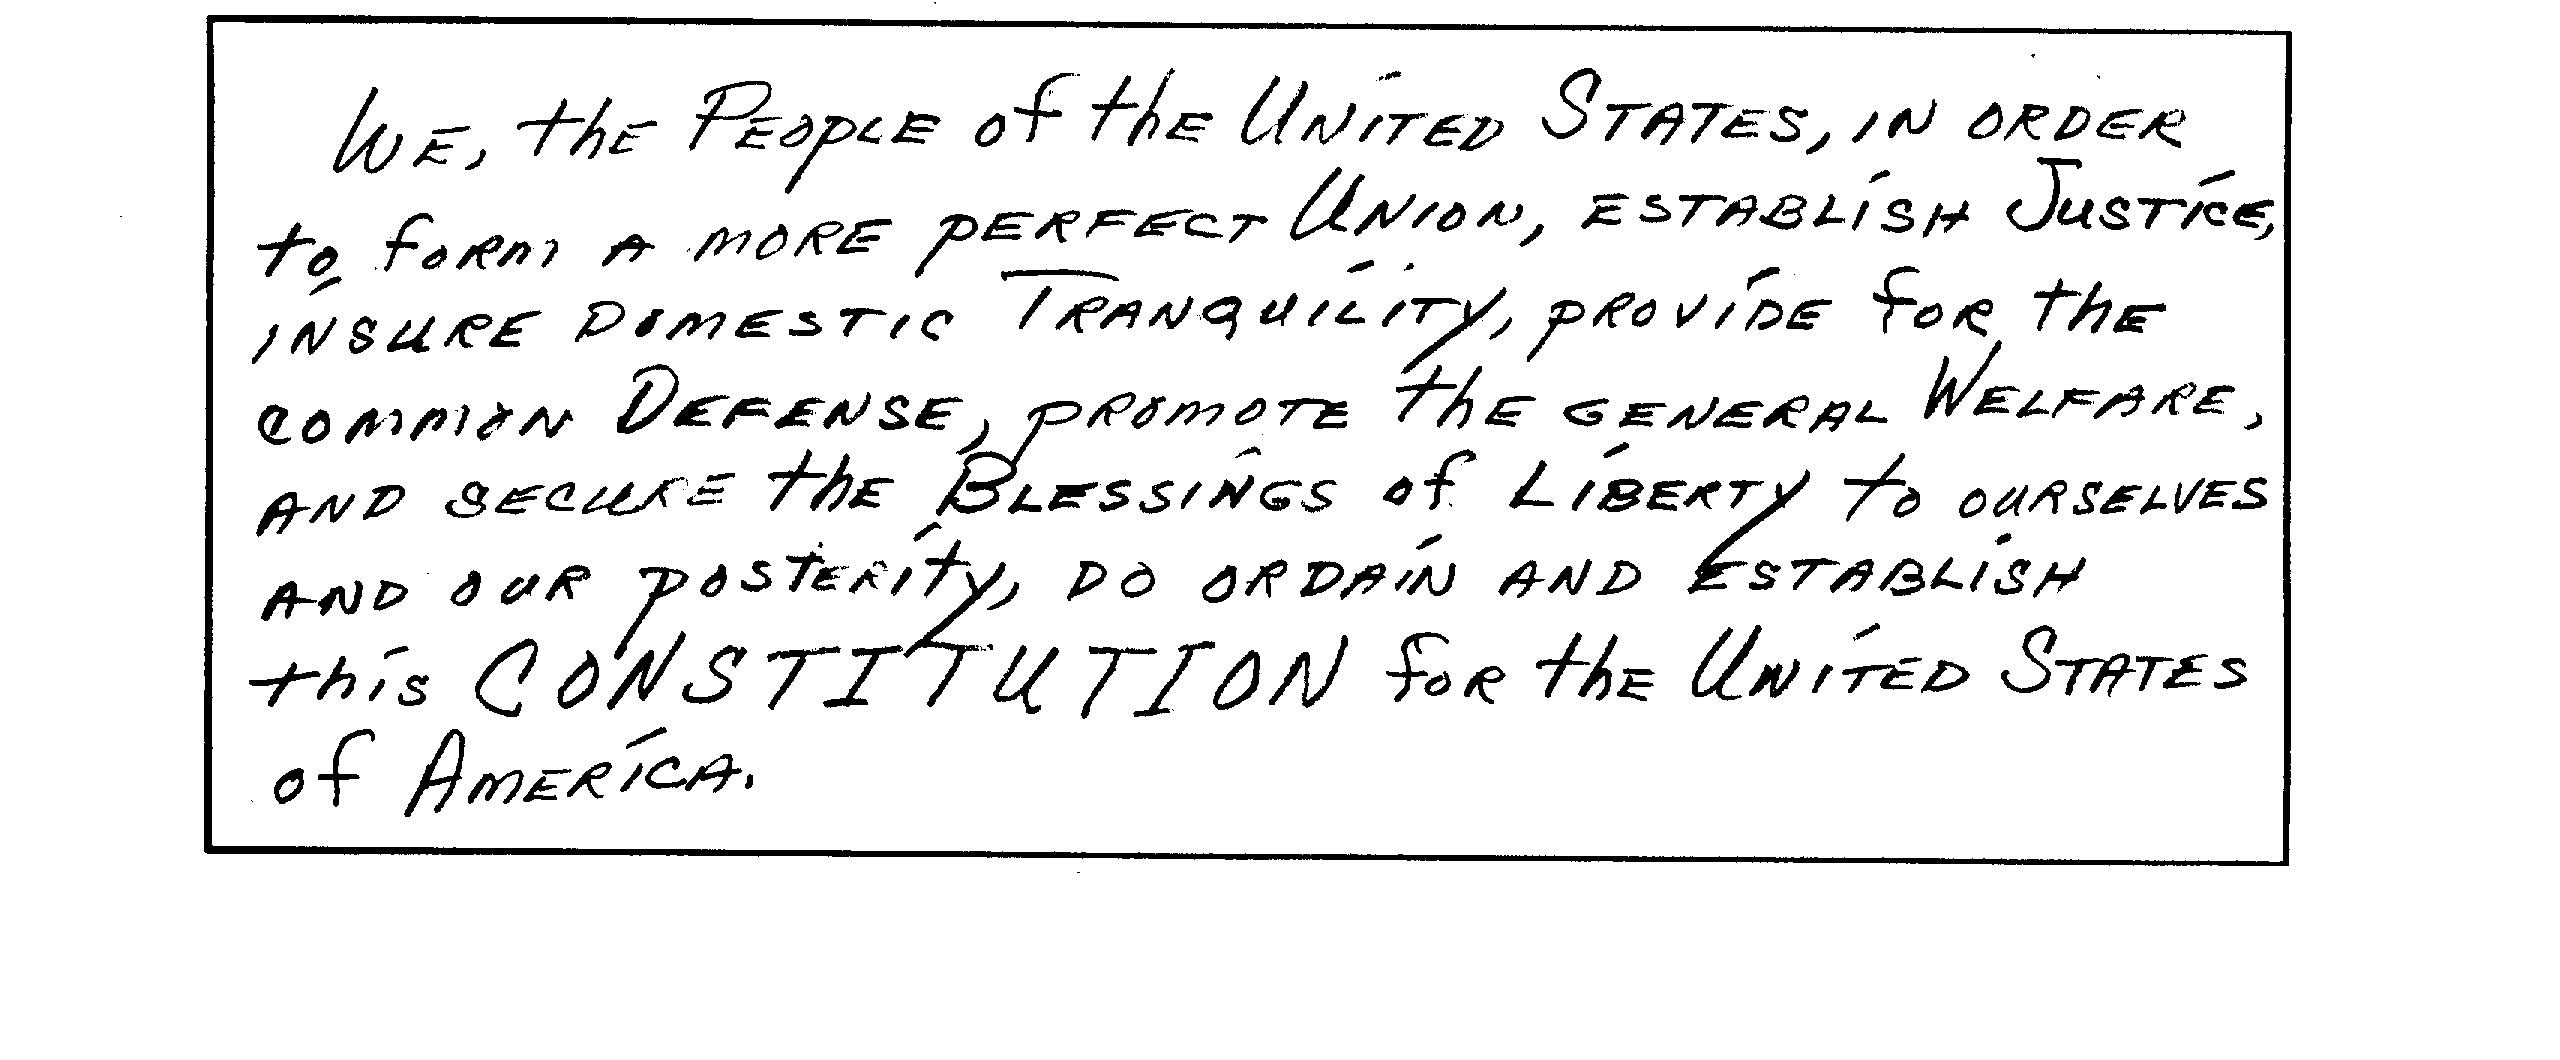 We, the People of the United States, in order
to form a more perfect Union, establish Justice,
insure domestic Tranquility, provide for the
common Defense, promote the general Welfare,
and secure the Blessings of Liberty to ourselves
and our posterity, do ordain and establish
this CONSTITUTION for the United States
of America.